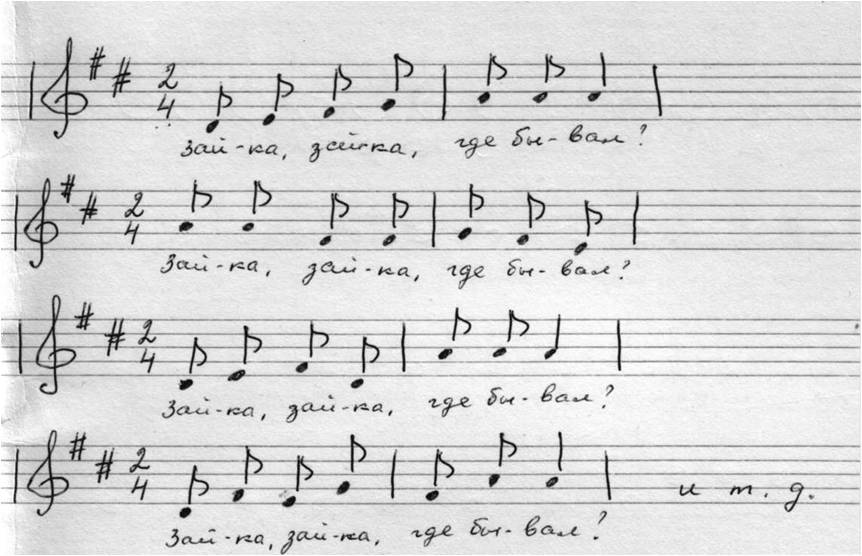 2
4
Зай-ка, зай-ка, где бы-вал?
2
4
Зай-ка, зай-ка, где бы-вал?
2
4
Зай-ка, зай-ка, где бы-вал?
2
4
и т. д.
Зай-ка, зай-ка, где бы-вал?